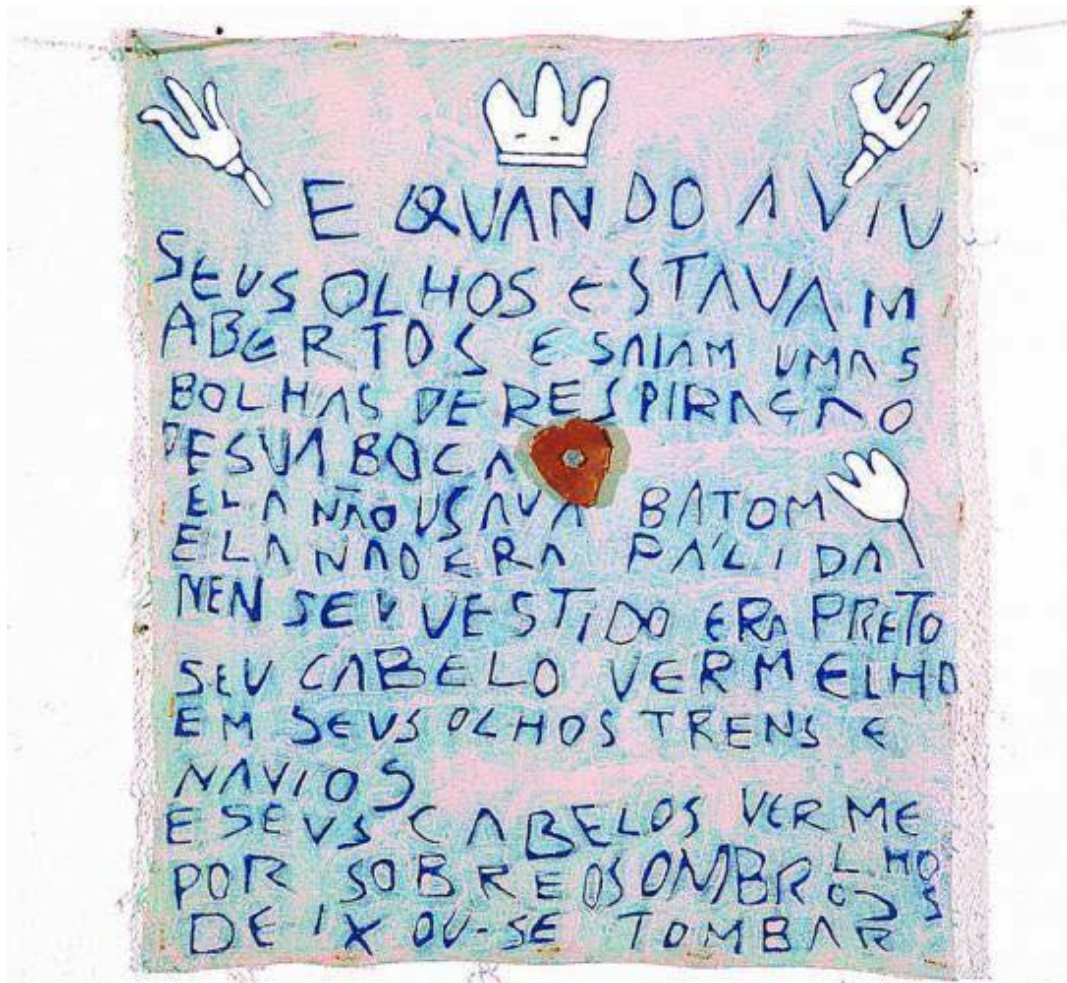 E QUANDO A VIU
SEUS OLHOS ESTAVAM
ABERTOS E SAIAM UMAS
BOLHAS DE RESPIRAÇÃO
DE SUA BOCA
ELA NÃO USAVA BATOM
ELA NÃO ERA PÁLIDA
NEN SEU VESTIDO ERA PRETO
SEU CABELO VERMELHO
EM SEUS OLHOS TRENS E
NAVIOS
E SEUS CABELOS VERMELHOS
POR SOBRE OS OMBROS
DEIXOU-SE TOMBAR